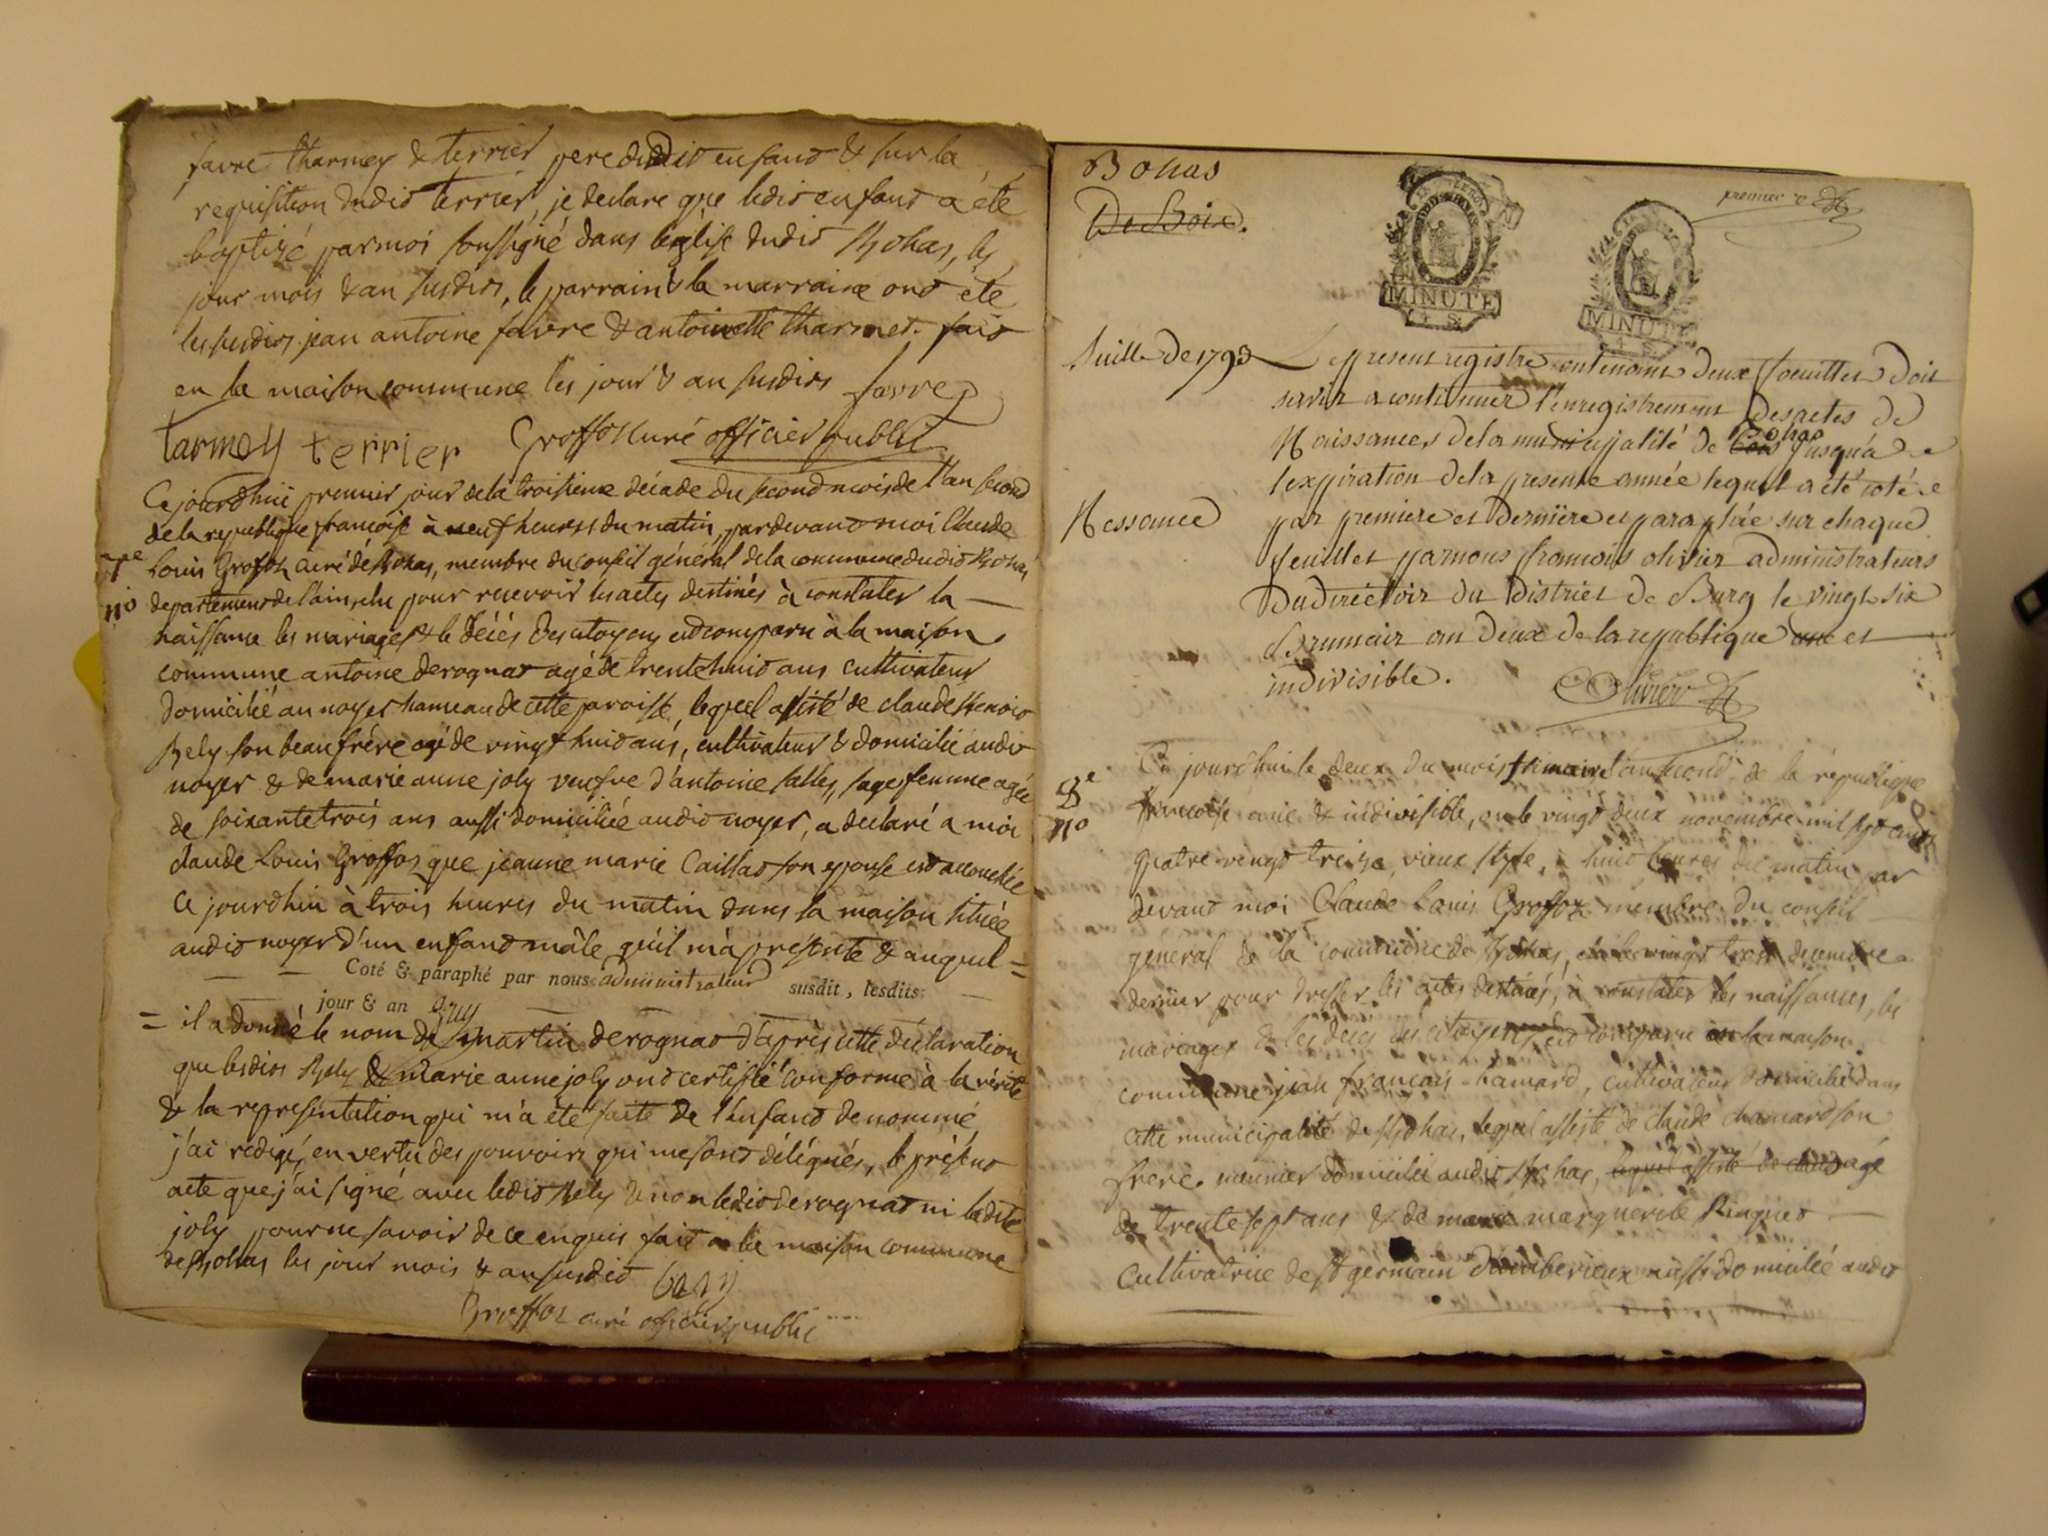 favre tharmey & terrier pere dudit enfant & sur la
requisition dudit terrier, je declare que ledit enfant a été
baptisé par moi soussigné dans léglise dudit Bohas, les
jour mois & an susdits, le parrain & la marraine ont été
les susdits jean antoine favre & antoinette tharmet. fait
en la maison commune les jour & an susdits favre
tarmey terrier Groffoz curé officier public
Ce jourdhui premier jour de la troisieme décade du second mois de l'an second
de la republique francoise à neuf heures du matin, pardevant moi Claude
7e Louis Groffoz curé de Bohas, membre du conseil général de la commune dudit Bohas
no departement de l'ain, elu pour recevoir les actes destinés à constater la
naissance les mariages & le décés des citoyens est comparu à la maison
commune antoine derognat agé de trente huit ans cultivateur
domicilié au noyer hameau de cette paroisse, lequel assisté de claude Benoit
Bely son beau frére agé de vingt huit ans, cultivateur & domicilié audit
noyer & de marie anne joly veufve d'antoine salles, sage femme agée
de soixante trois ans aussi domiciliée audit noyer, a declaré a moi
claude Louis Groffoz que jeanne marie Caillat son epouse est accouchée
ce jourdhui à trois heures du matin dans sa maison située
audit noyer d'un enfant mâle qu'il m'a présenté & auquel =
Coté & paraphé par nous administrateur susdit, lesdits
jour & an
= il a donné le nom de martin derognat d'après cette déclaration
que lesdits Bely & marie anne joly ont certifié conforme à la vérité
& la representation qui m'a été faite de l'enfant denommé
j'ai rédigé, en vertu des pouvoirs qui me sont délégués, le présent
acte que j'ai signé avec ledit Bely & non ledit derognat ni ladite
joly pour ne savoir de ce enquis fait a la maison commune
de Bohas les jour mois & an susdit bely
Groffoz curé officier public
Bohas
De Boix.
premier
MINUTE
4 S
MINUTE
4 S
Suitte de 1793
Le present registre contenant deux foeuilles doit
servir a continuer l'enregistrement des actes de
Naissances de la municipalité de Bohas jusqu'a
lexpiration de la presente année lequel a été coté
Nessance par premiere et derniere et paraphée sur chaque
feuillet par nous francois olivier administrateurs
du directoir du district de Bourg le vingt six
Brumair an deux de la republique une et
indivisible.
Olivier
Ce jourdhui le deux du mois frimaire l'an second de la république
8e francoise une & indivisible, ou le vingt deux novembre mil sept cent
no quatre vingt treize, vieux style, à huit heures du matin par
devant moi Claude Louis Groffoz membre du conseil
général de la commune de Bohas, elu le vingt trois decembre
dernier pour dresser les actes destinés, à constater les naissances, les
mariages & les deces des citoyens est comparu en la maison
commune jean francois chamard, cultivateur domicilié dans
cette municipalité de Bohas, lequel assisté de claude chamard son
frere meunier domicilié audit Bohas, lequel assisté de claude agé
de trente sept ans & de marie marguerite Ringuet
Cultivatrice de St germain d'amberieux aussi domiciliée audit